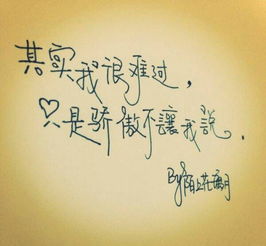 其实我很难过，
♡只是骄傲不讓我說．
By 陌上花